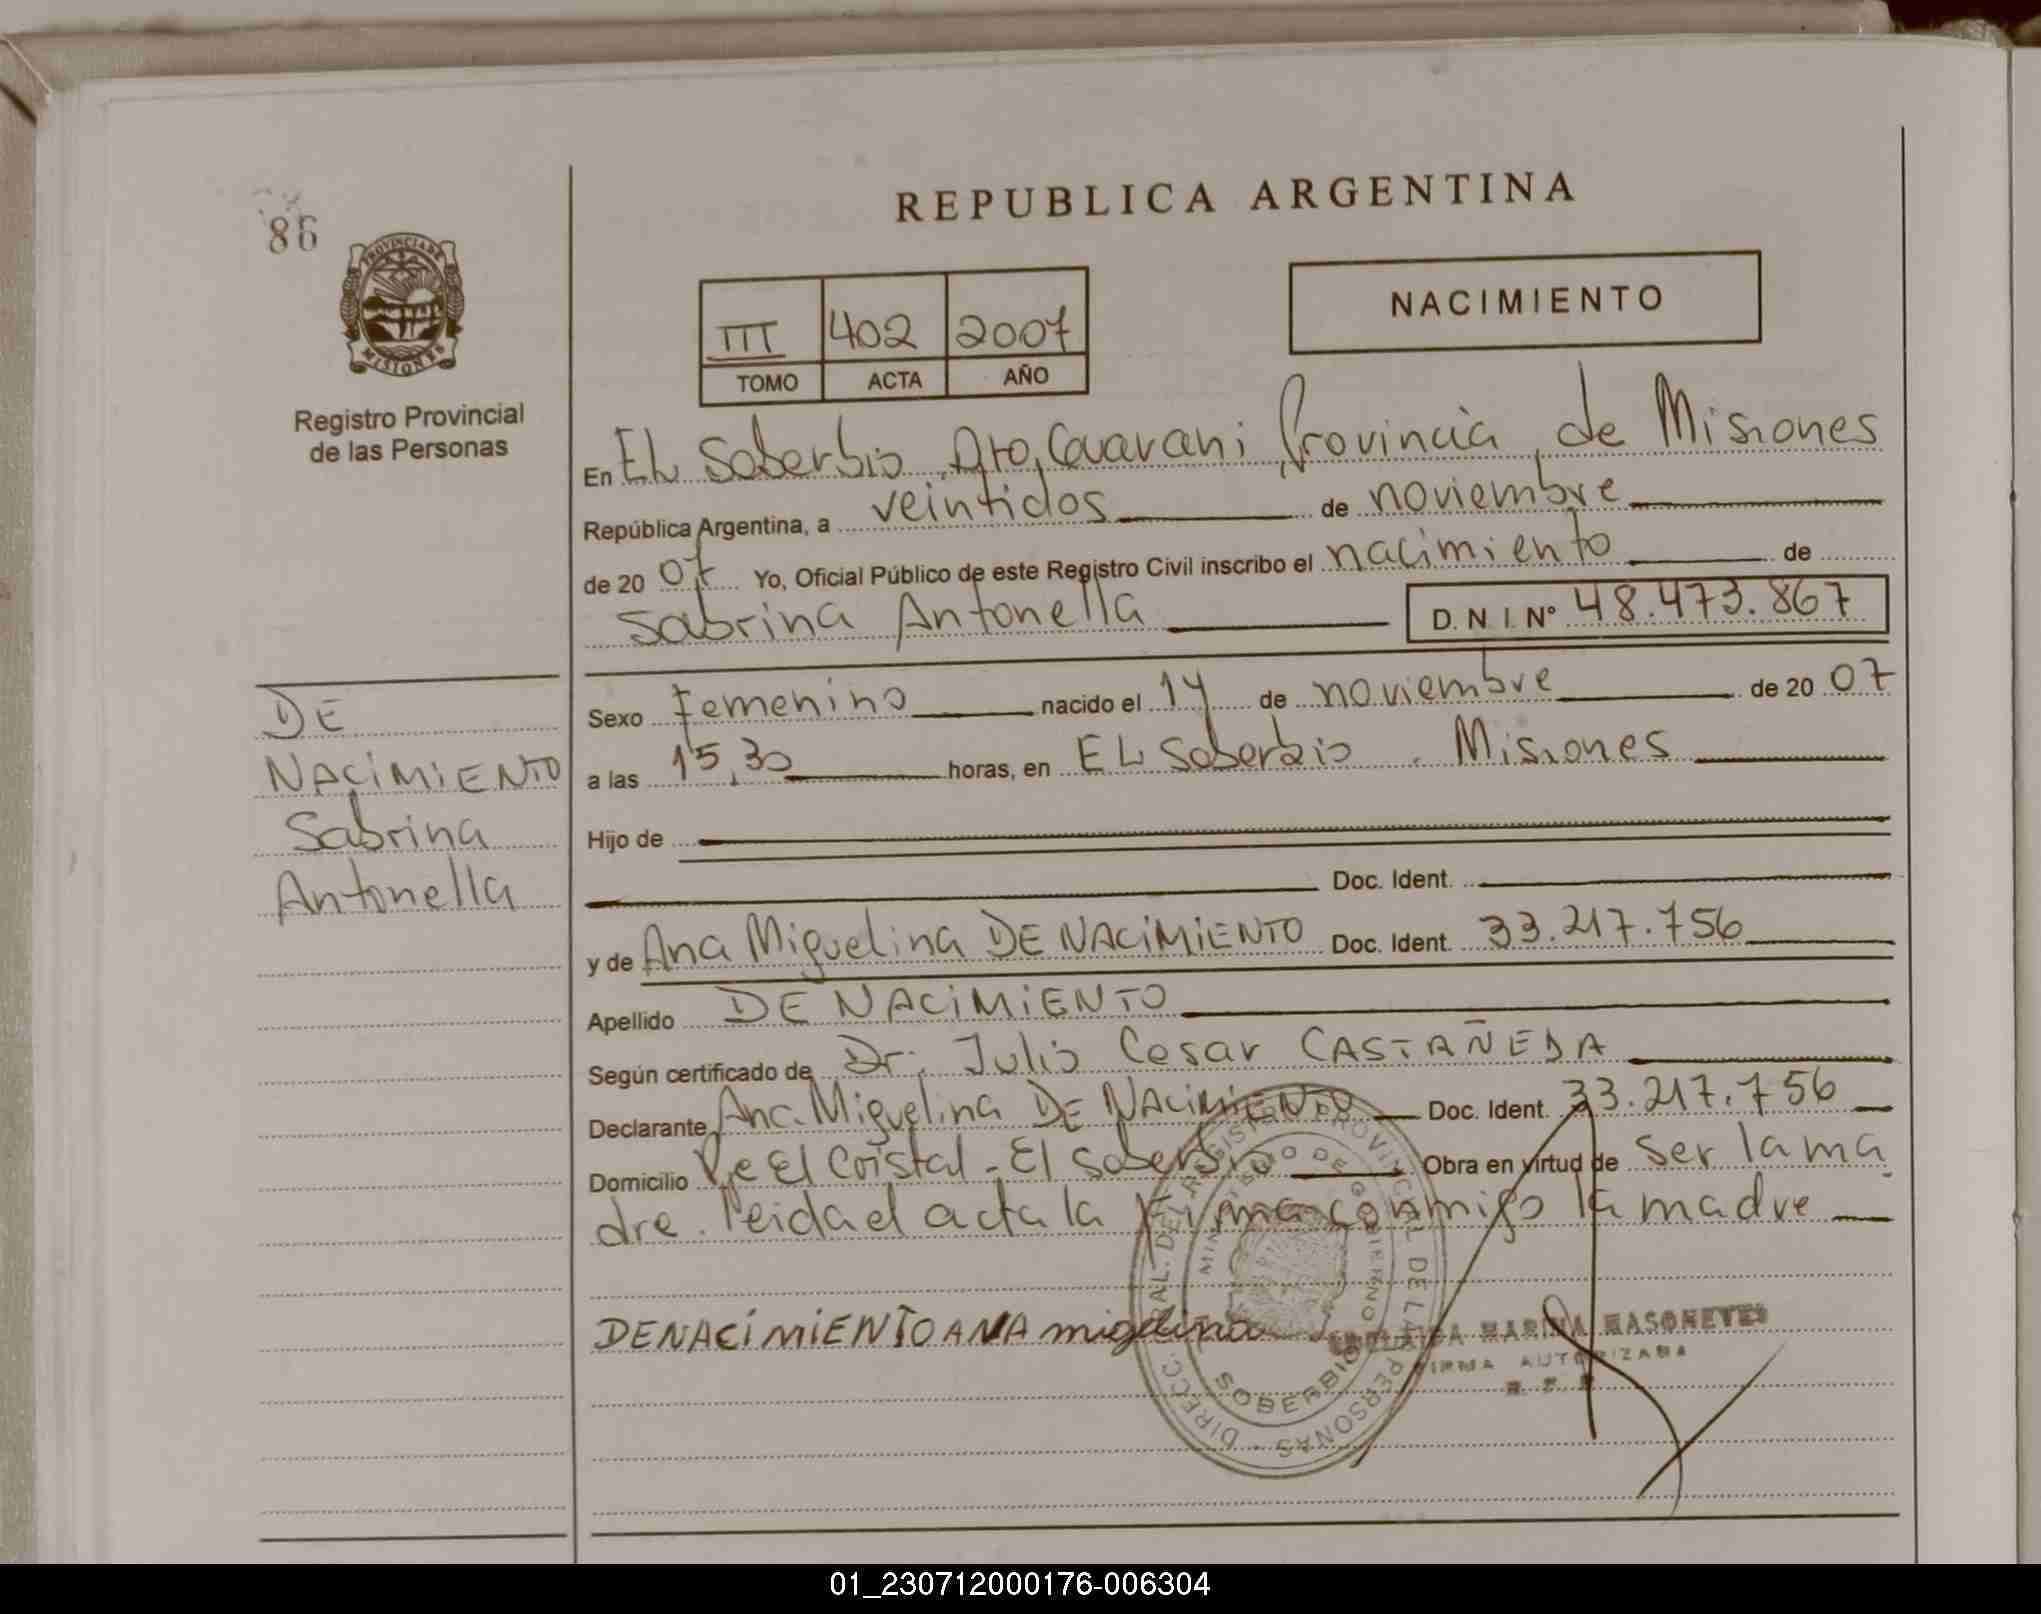 86
PROVINCIA DE
MISIONES
Registro Provincial
de las Personas
REPUBLICA ARGENTINA
NACIMIENTO
III 402 2007
TOMO ACTA AÑO
En EL Soberbio, Dto, Guarani, Provincia de Misiones
República Argentina, a veintidos de noviembre
de 20 07 Yo, Oficial Público de este Registro Civil inscribo el nacimiento de
Sabrina Antonella D. N. I. Nº 48.473.867
DE
NACIMIENTO
Sabrina
Antonella
Sexo Femenino nacido el 14 de noviembre de 20 07
a las 15,30 horas, en EL Soberbio. Misiones
Hijo de
Doc. Ident.
y de Ana Miguelina DE NACIMIENTO Doc. Ident. 33.217.756
Apellido DE NACIMIENTO
Según certificado de Dr. Julio Cesar CASTAÑEDA
Declarante Ana Miguelina DE NACIMIENTO Doc. Ident. 33.217.756
Domicilio El Cristal - El Soberbio Obra en virtud de ser la ma
dre. leida el acta la firma conmigo la madre
DENACIMIENTO ANA migelina
MARINA MASONEVES
FIRMA AUTORIZADA
DIRECC. GRAL. DEL REGISTRO PROVINCIAL DE LAS PERSONAS
MINISTERIO DE GOBIERNO
SOBERBIO
01_230712000176-006304